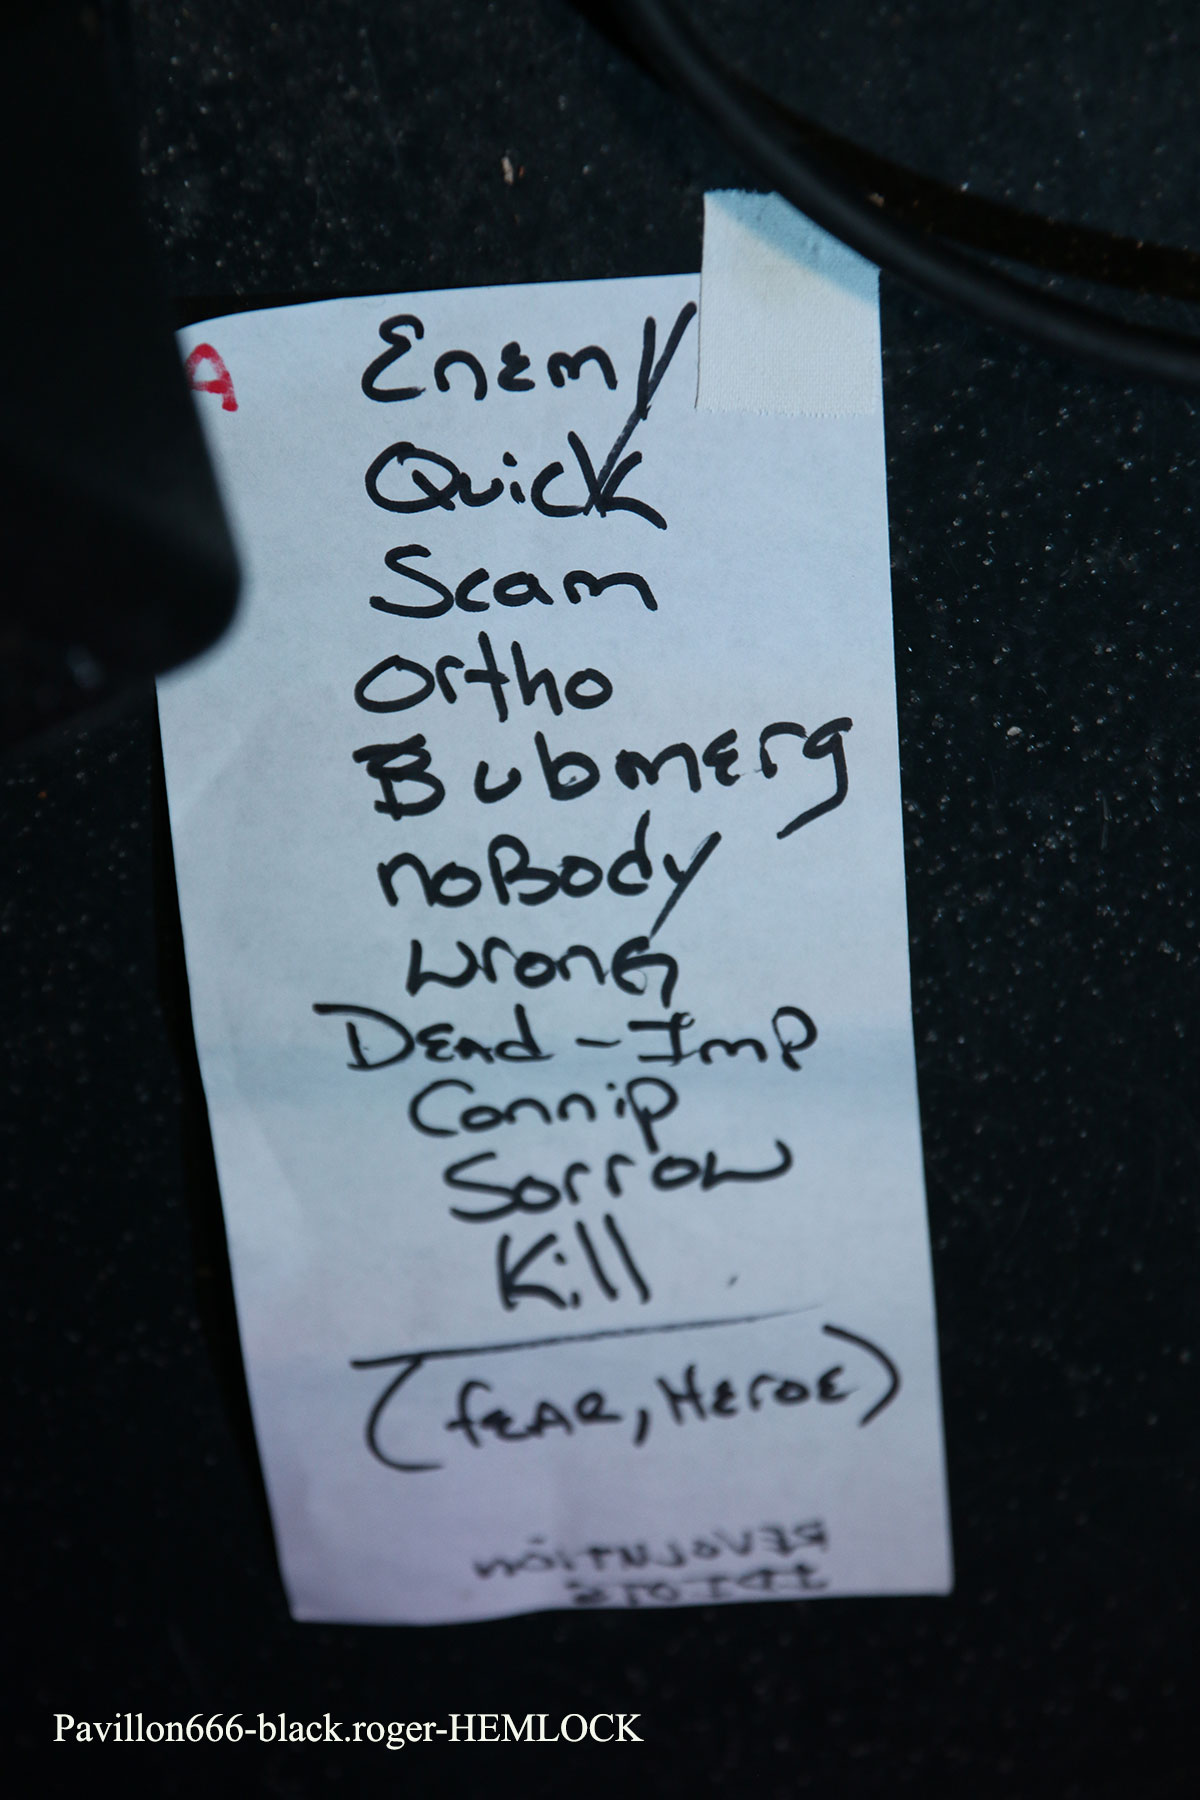 A
Enemy
Quick
Scam
Ortho
Bubmerg
noBody
wrong
Dead-Imp
Connip
Sorrow
Kill
(fear, Heroe)
REVOLUTION
IDIOTS
Pavillon666-black.roger-HEMLOCK